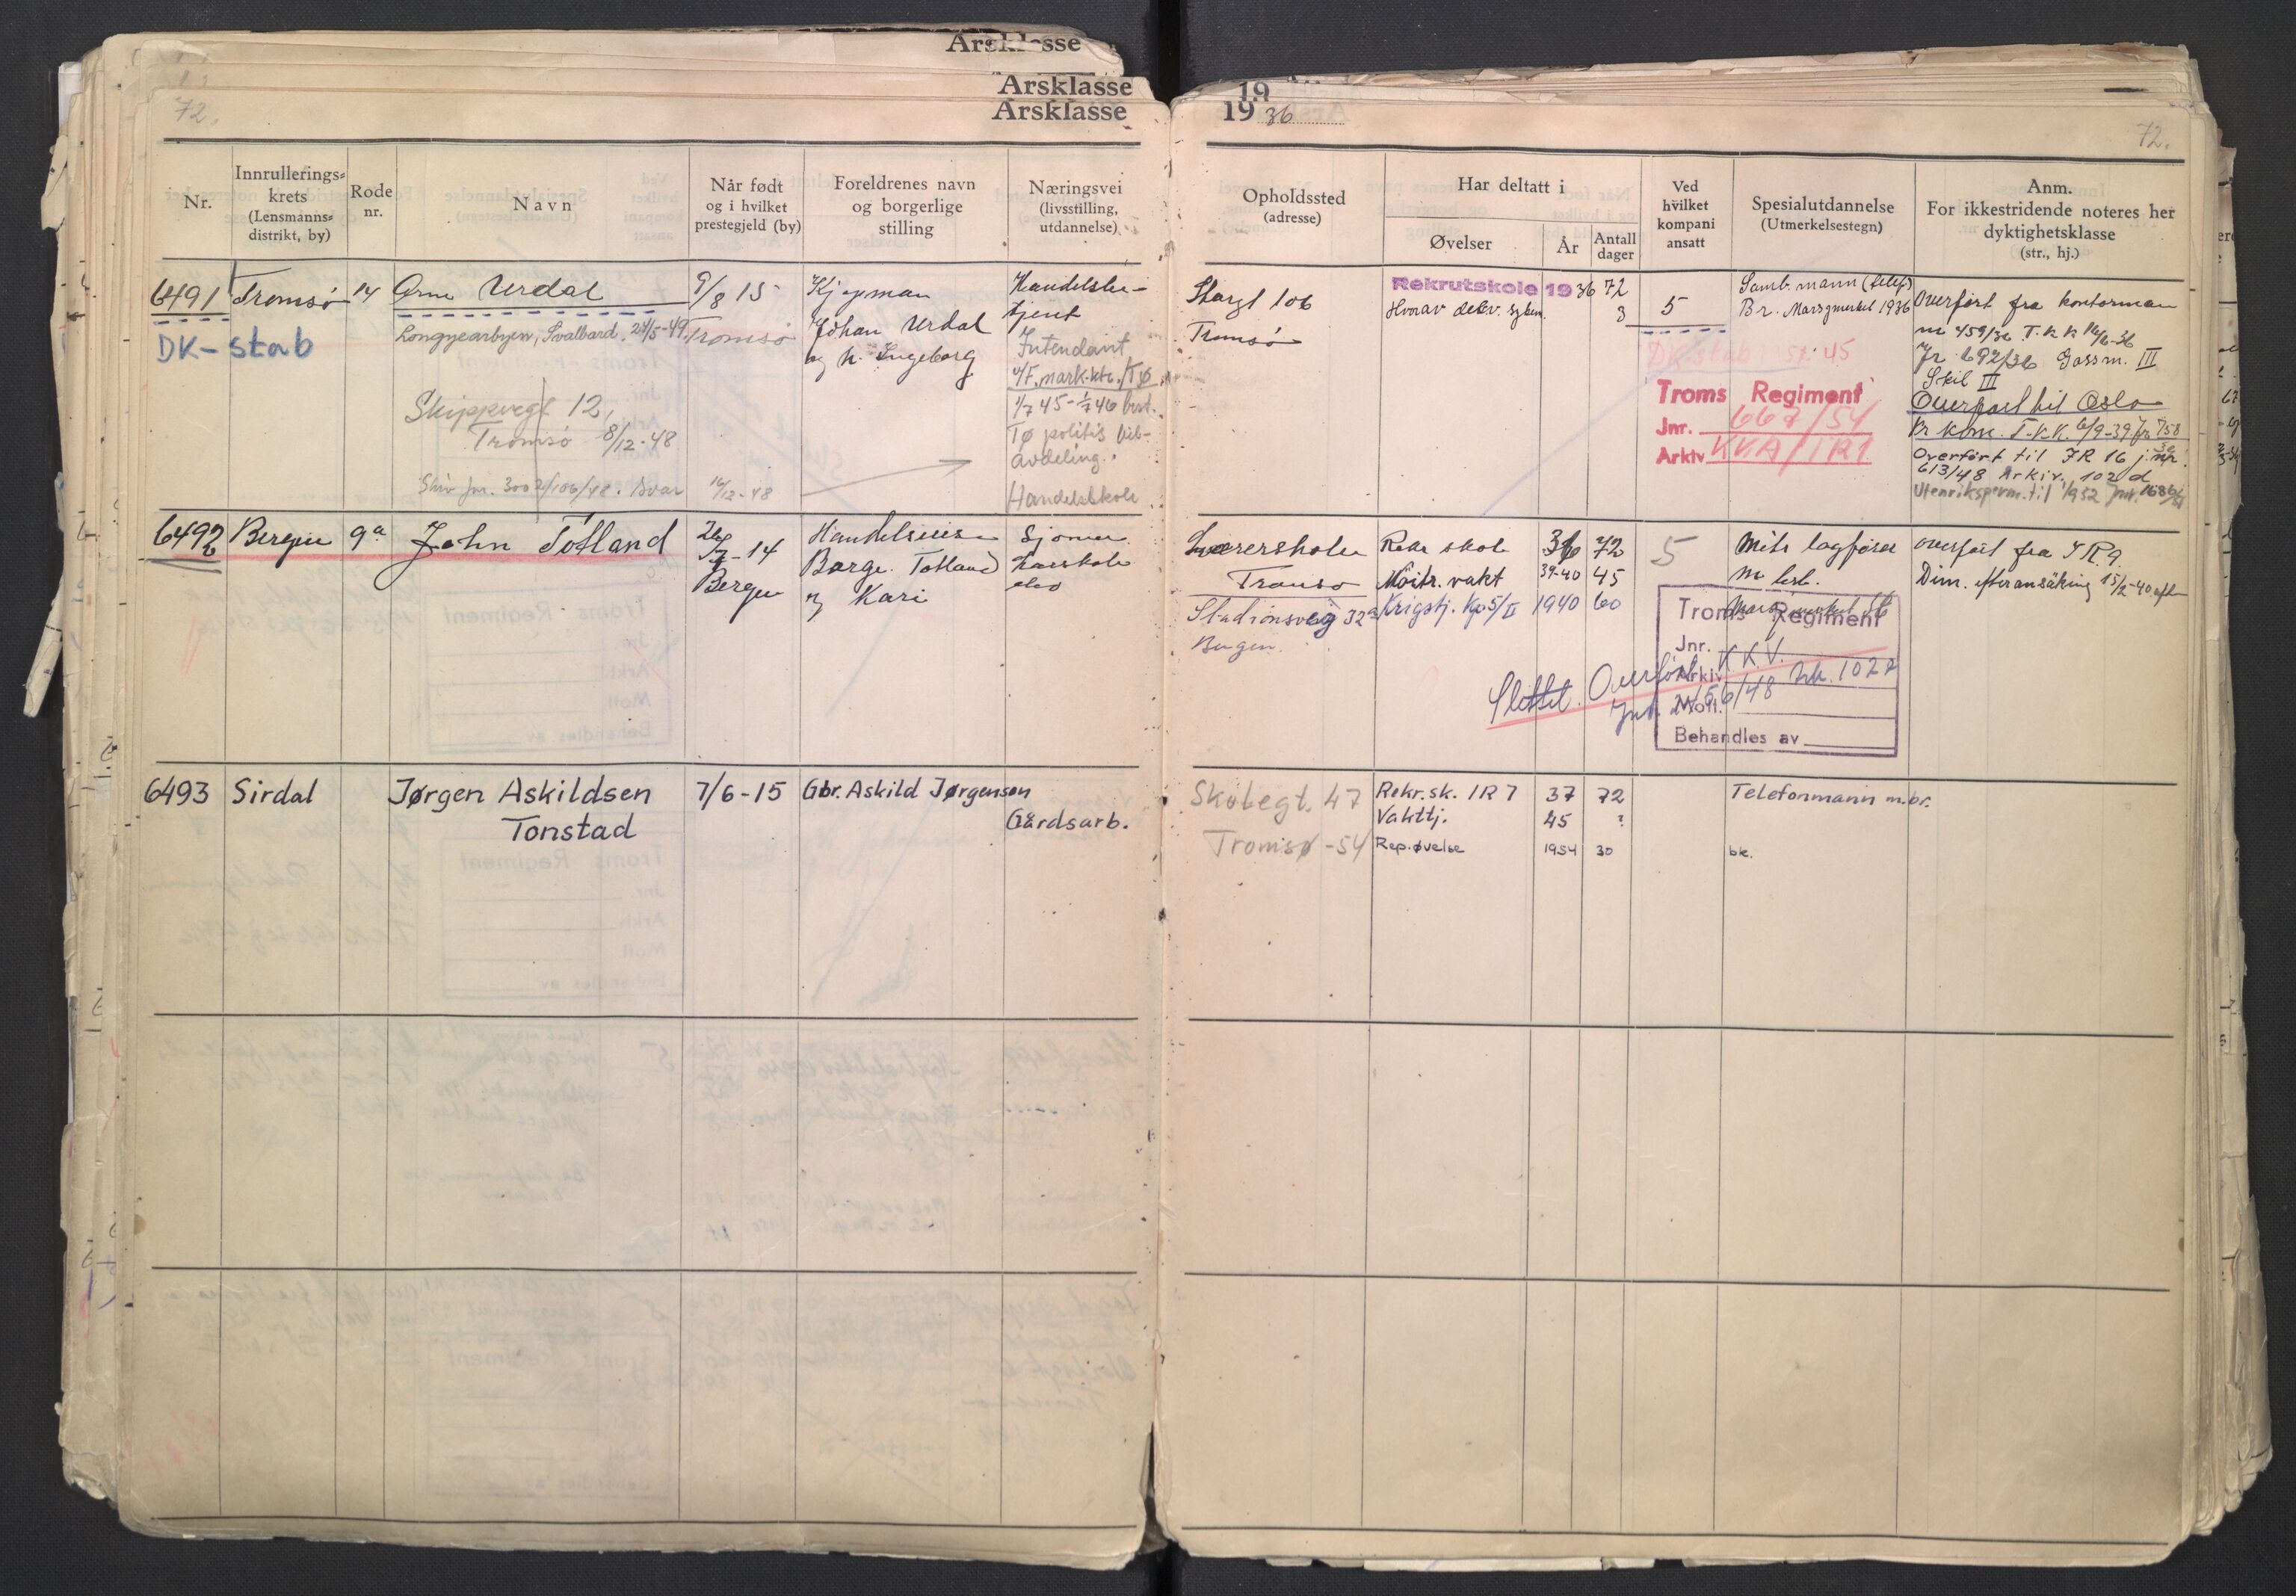 Årsklasse
Årsklasse
Årsklasse
72.
Nr.
Innrullerings-
krets
(Lensmanns-
distrikt, by)
Rode
nr.
Navn
Når født
og i hvilket
prestegjeld (by)
Foreldrenes navn
og borgerlige
stilling
Næringsvei
(livsstilling,
utdannelse)
6491 Tromsø 14 Arne Urdal 9/8 15
Kjøpman
Johan Urdal
og h. Ingeborg
Handelsbe-
tjent
DK-stab
Longyearbyen, Svalbard. 24/5-49. Tromsø
Intendant
v/F. mark.ktr./Tø
1/7 45 - 1/7 46 best.
Tø politis bil-
avdeling.
Handelskole
Skippergt 12,
Tromsø 8/12-48
Skriv jnr. 3002/106/48. Svar 16/12-48
6492 Bergen 9a John Totland
7-14
Bergen
Handelsreis
Borge Totland
og Kari
Sjømu
karskole
elev
6493 Sirdal Jørgen Askildsen
Tonstad
7/6-15 Gbr. Askild Jørgensen
Gårdsarb.
19
19 36
72.
Opholdssted
(adresse)
Har deltatt i
Øvelser
År
Antall
dager
Ved
hvilket
kompani
ansatt
Spesialutdannelse
(Utmerkelsestegn)
Anm.
For ikkestridende noteres her
dyktighetsklasse
(str., hj.)
Storgt 106
Tromsø
Rekrutskole 1936 72
Hvorav dekv. syken. 3
5
Samb. mann (telef)
Br. Marsjmerket 1936
Overført fra kontorman
nr 459/36 T.K.K 16/6-36
Jr. 692/36 Gassm. III
Skil III
Overført til Oslo
Br kom. T.K.K. 6/9-39 Jr 758
Overført til IR 16 j.nr.
613/48 Arkiv. 102 d
Utenriksperm. til 1952 Jnr. 1686/51
DK stab st. 45
Troms Regiment
Jnr. 667/54
Arkiv KVA/IR1
Lærerskolen
Tromsø
Stadionsveg 32a
Bergen.
Rekr skole 36 72
Nøitr. vakt 39-40 45
Krigstj. Kp 5/II 1940 60
5
Mitr lagfører
m best.
Marsjmerket 36
overført fra IR 9.
Dim. efter ansøking 15/2-40 eft
Troms Regiment
Jnr.
Arkiv
Mott.
Behandles av
Slettet. Overført K.K.V.
Jnr. 56/48 ark. 102
Skolegt. 47
Tromsø -54
Rekr.sk. IR 7 37 72
Vakttj. 45 ?
Rep.øvelse 1954 30
Telefonmann m.br.
bk.